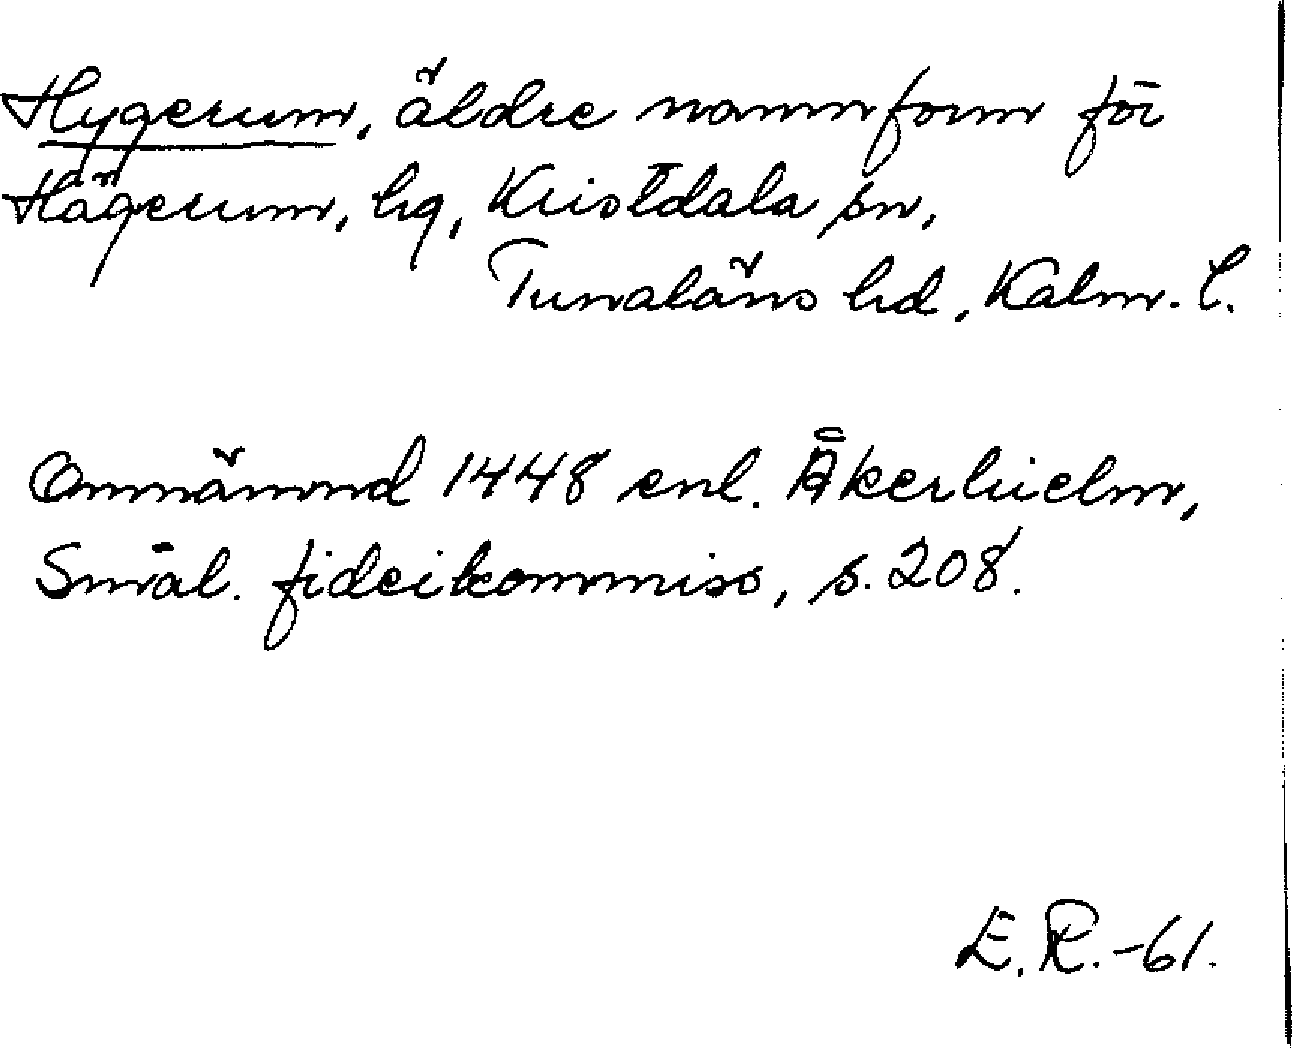 Hygerum, äldre namnform för
Hägerum, hg, Kristdala sn,
Tunaläns hd, Kalm. l.
Omnämnd 1448 enl. Åkerhielm,
Smål. fideikommiss, s. 208.
E. R. -61.